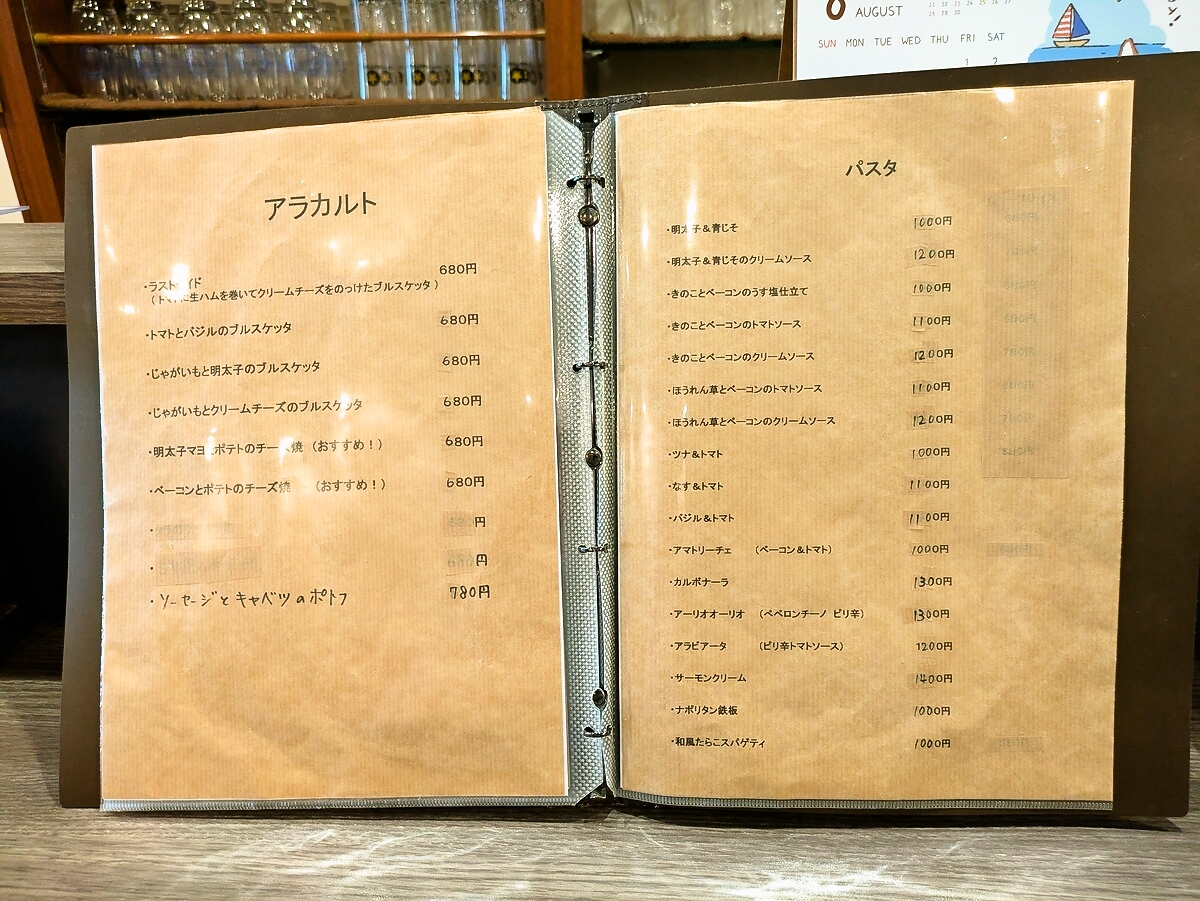 AUGUST
SUN MON TUE WED THU FRI SAT
1 2
アラカルト
・ラスト イド 680円
(トマトに生ハムを巻いてクリームチーズをのっけたブルスケッタ)
・トマトとバジルのブルスケッタ 680円
・じゃがいもと明太子のブルスケッタ 680円
・じゃがいもとクリームチーズのブルスケッタ 680円
・明太子マヨとポテトのチーズ焼 (おすすめ!) 680円
・ベーコンとポテトのチーズ焼 (おすすめ!) 680円
・ 円
・ 円
・ソーセージとキャベツのポトフ 780円
パスタ
・明太子&青じそ 1000円
・明太子&青じそのクリームソース 1200円
・きのことベーコンのうす塩仕立て 1000円
・きのことベーコンのトマトソース 1100円
・きのことベーコンのクリームソース 1200円
・ほうれん草とベーコンのトマトソース 1100円
・ほうれん草とベーコンのクリームソース 1200円
・ツナ&トマト 1000円
・なす&トマト 1100円
・バジル&トマト 1100円
・アマトリーチェ (ベーコン&トマト) 1000円
・カルボナーラ 1300円
・アーリオオーリオ (ペペロンチーノ ピリ辛) 1300円
・アラビアータ (ピリ辛トマトソース) 1200円
・サーモンクリーム 1400円
・ナポリタン鉄板 1000円
・和風たらこスパゲティ 1000円